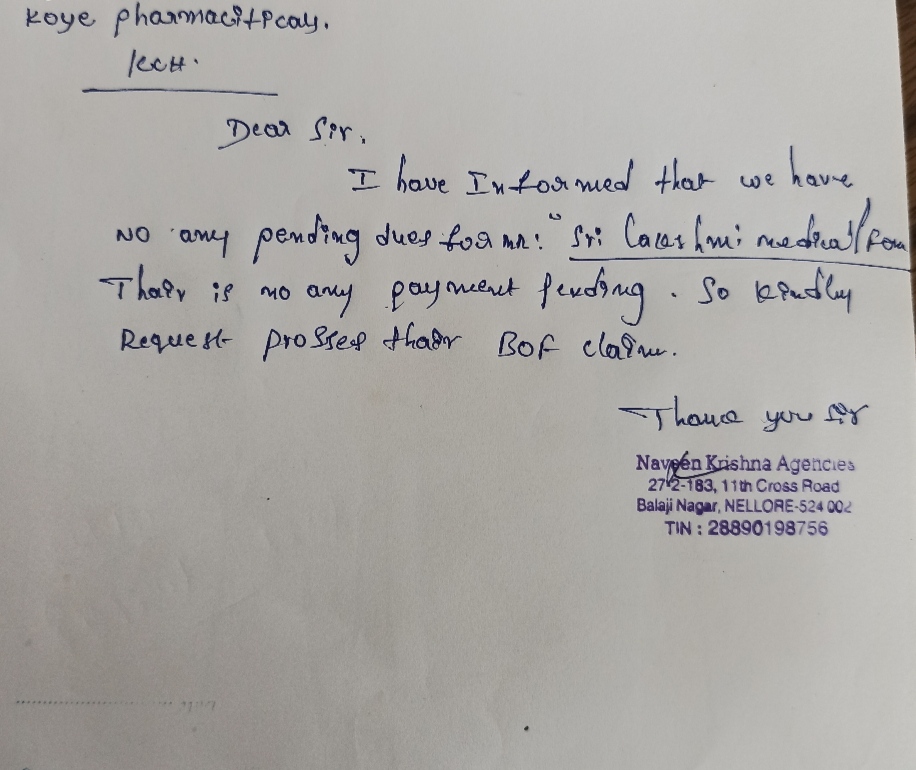 Koye pharmacitical.
KCH.
Dear Sir,
I have Informed that we have
NO any pending dues for mr: "Sri Laxshmi medical/
Thair is no any payment pending. So kindly
Request prosses thair BOF claim.
Thank you sir
Naveen Krishna Agencies
27-2-183, 11th Cross Road
Balaji Nagar, NELLORE-524 002
TIN : 28890198756